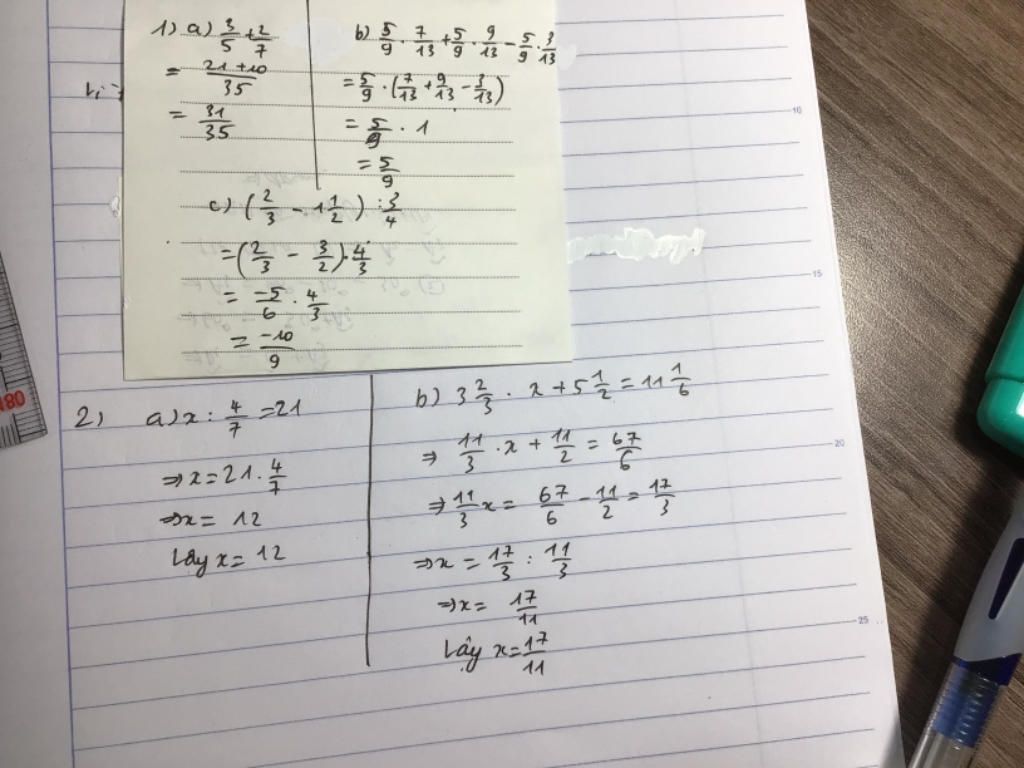 1) a) 3/5 + 2/7
= 21+10/35
= 31/35
b) 5/9 . 7/13 + 5/9 . 9/13 - 5/9 . 3/13
= 5/9 . (7/13 + 9/13 - 3/13)
= 5/9 . 1
= 5/9
c) (2/3 - 1 1/2) : 3/4
= (2/3 - 3/2) . 4/3
= -5/6 . 4/3
= -10/9
2) a) x : 4/7 = 21
⇒ x = 21 . 4/7
⇒ x = 12
Vậy x = 12
b) 3 2/3 . x + 5 1/2 = 11 1/6
⇒ 11/3 . x + 11/2 = 67/6
⇒ 11/3 x = 67/6 - 11/2 = 17/3
⇒ x = 17/3 : 11/3
⇒ x = 17/11
Vậy x = 17/11
10
15
20
25
180